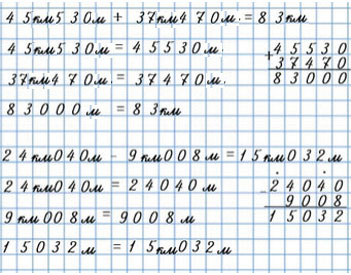 45км530м + 37км470м. = 83км
45км530м = 45530м.
37км470м = 37470м.
83000м = 83км
+45530
37470
83000
24км040м - 9км008м = 15км032м
24км040м = 24040м
9км008м = 9008м
15032м = 15км032м
-24040
9008
15032